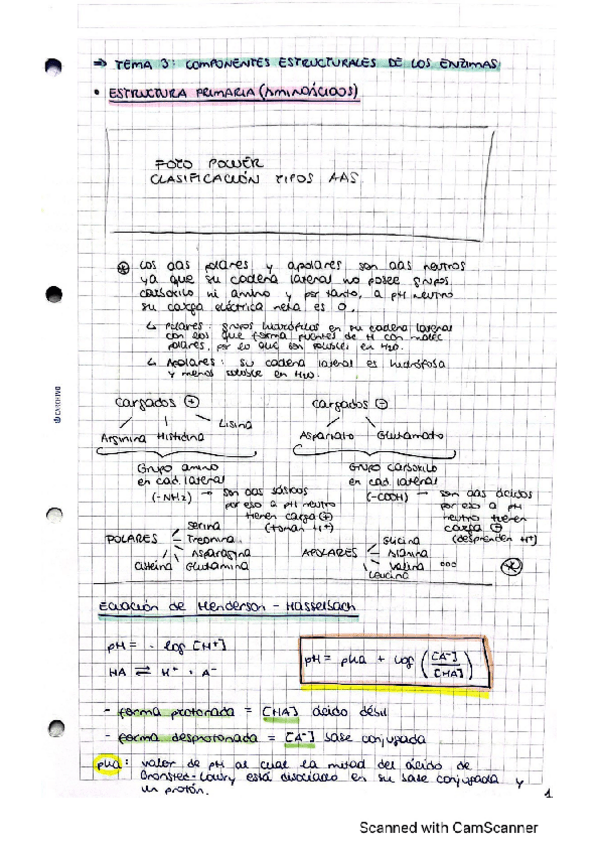 ⇒ TEMA 3: COMPONENTES ESTRUCTURALES DE LOS ENZIMAS
• ESTRUCTURA PRIMARIA (AMINOÁCIDOS)
FOTO POWER
CLASIFICACIÓN TIPOS AAS
* Los aas polares y apolares son aas neutros
ya que su cadena lateral no posee grupos
carboxilo ni amino y por tanto, a pH neutro
su carga eléctrica neta es 0.
↳ Polares: grupos hidrófilos en su cadena lateral
con los que forma puentes de H con moléc
polares, por lo que son solubles en H2O.
↳ Apolares: su cadena lateral es hidrófoba
y menos soluble en H2O.
Cargados + Cargados -
Arginina Histidina Lisina Aspartato Glutamato
Grupo amino Grupo carboxilo
en cad. lateral en cad. lateral
(-NH2) → son aas básicos (-COOH) → son aas ácidos
por eso a pH neutro por eso a pH
tienen carga + neutro tienen
(toman H+) carga -
(desprenden H+)
POLARES Serina Treonina Asparagina Glutamina Cisteína
APOLARES Glicina Alanina Valina Leucina ... *
Ecuación de Henderson - Hasselbach
pH = - log [H+]
HA ⇌ H+ + A-
pH = pKa + log ([A-]/[HA])
- forma protonada = [HA] ácido débil
- forma desprotonada = [A-] base conjugada
pKa: valor de pH al cual la mitad del ácido de
Bronsted-Lowry está disociado en su base conjugada y
un protón.
1
Scanned with CamScanner